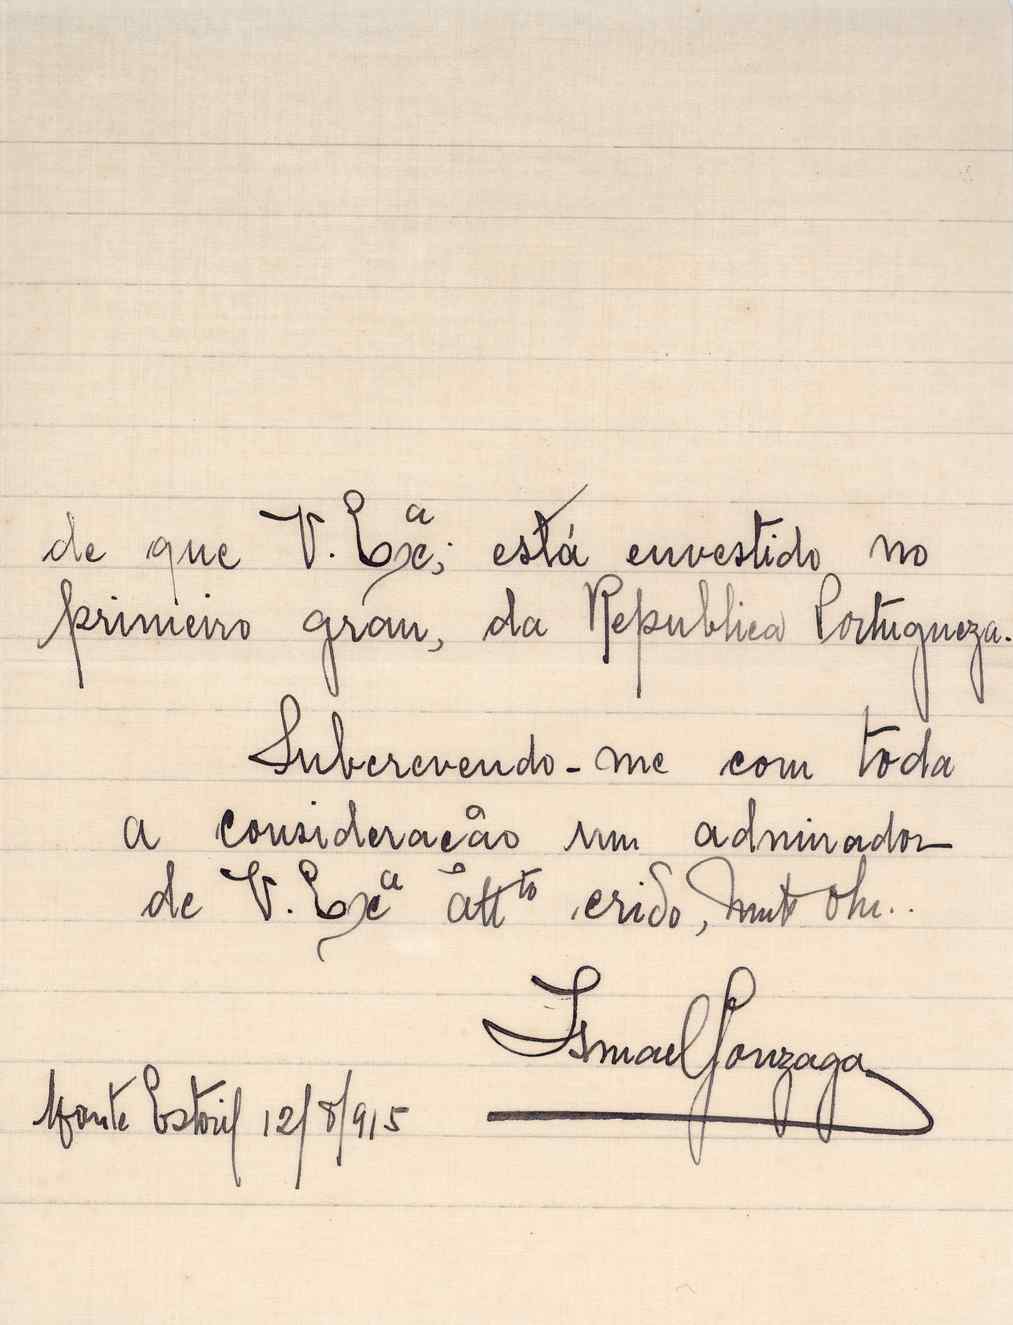 de que V. Ex.ª; está envestido no
primeiro grau, da Republica Portugueza.
Subcrevendo-me com toda
a consideração um admirador
de V. Exª att.to crido, mt.
Ismael Gonzaga
Monte Estoril 12/8/915